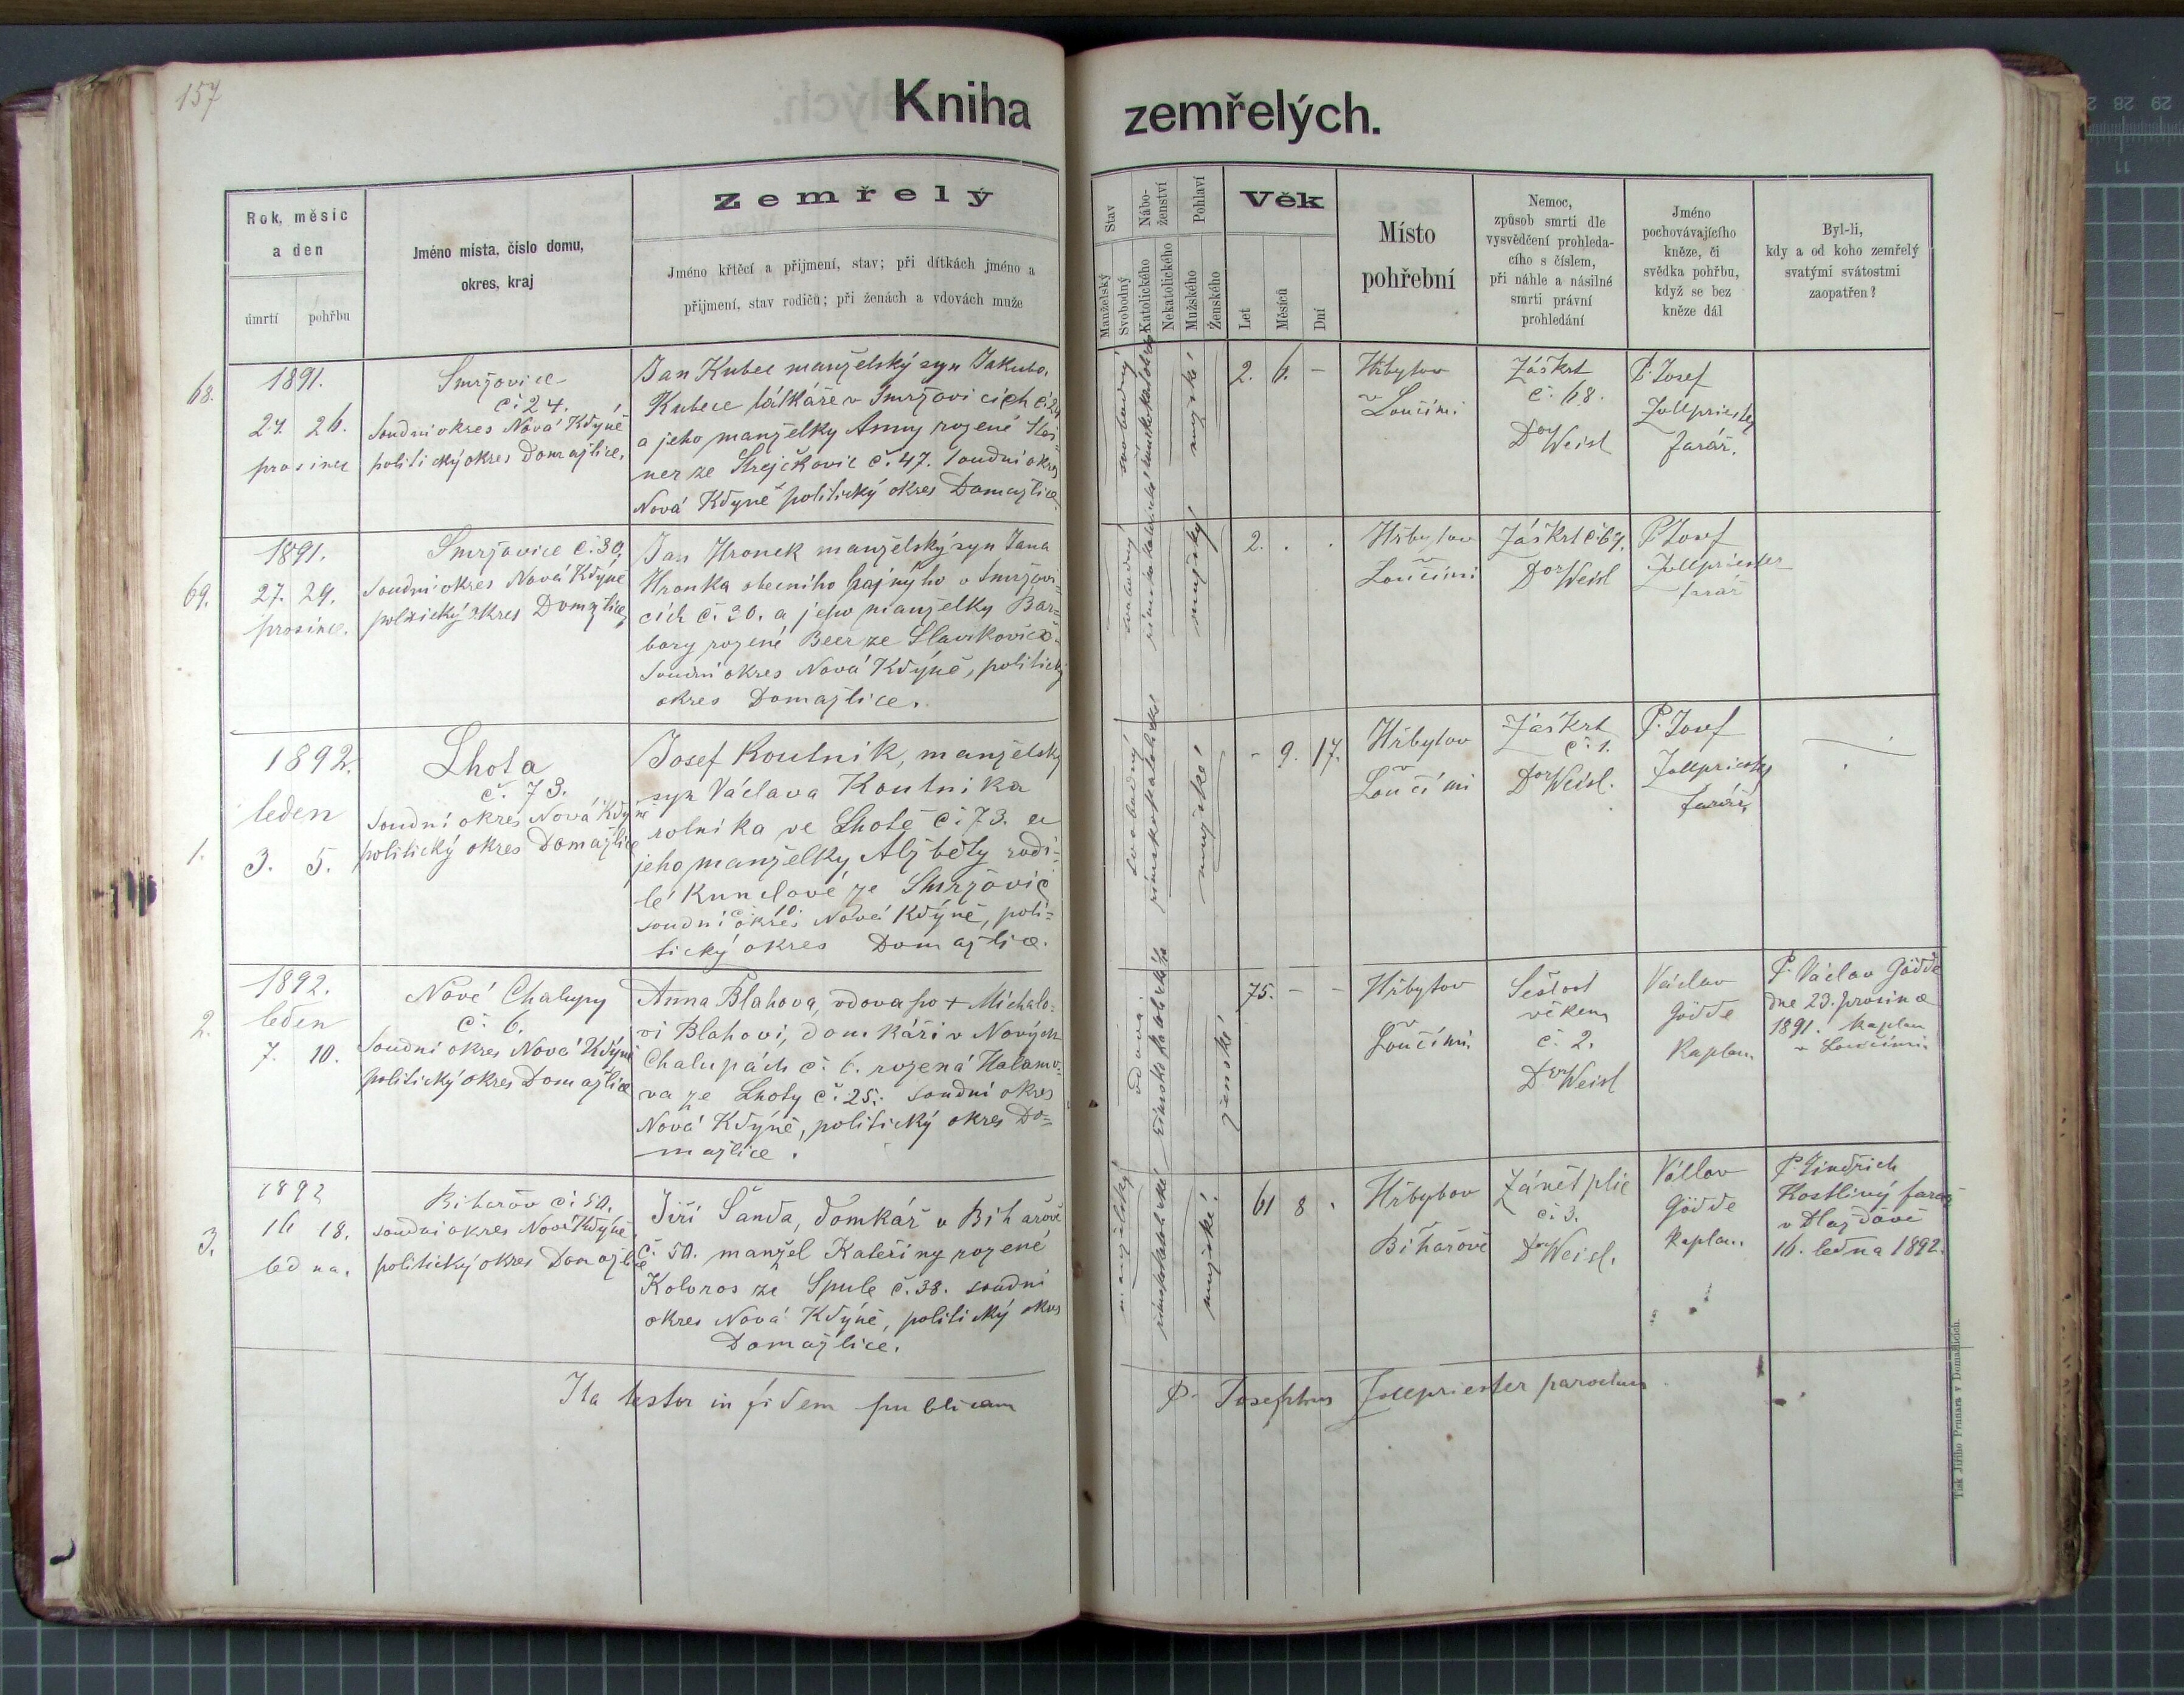 157
Kniha zemřelých.
Rok, měsíc
a den
úmrtí
pohřbu
Jméno místa, číslo domu,
okres, kraj
Zemřelý
Jméno křtěcí a přijmení, stav; při dítkách jméno a
přijmení, stav rodičů; při ženách a vdovách muže
Stav
Manželský
Svobodný
Nábo-
ženství
Katolického
Nekatolického
Pohlaví
Mužského
Ženského
Věk
Let
Měsíců
Dní
Místo
pohřební
Nemoc,
způsob smrti dle
vysvědčení prohleda-
cího s číslem,
při náhle a násilné
smrti právní
prohledání
Jméno
pochovávajícího
kněze, či
svědka pohřbu,
když se bez
kněze dál
Byl-li,
kdy a od koho zemřelý
svatými svátostmi
zaopatřen?
68.
1891.
24. 26.
prosince
Smržovice
č. 24.
Soudní okres Nová Kdýně
politický okres Domažlice.
Jan Kubec manželský syn Jakuba
Kubece látkáře v Smržovicích č. 24
a jeho manželky Anny rozené Stei-
ner ze Strejčkovic č. 47. soudní okres
Nová Kdyně politický okres Domažlice.
svobodný
římskokatolické
mužské
2. 6. -
Hřbytov
v
Loučimi
Záškrt
č. 68.
Dor Weisl
P. Josef
Zollpriester
farář.
69.
1891.
27. 29.
prosince.
Smržovice č. 30.
soudní okres Nová Kdýně
politický okres Domažlice
Jan Hronek manželský syn Jana
Hronka obecního hajného v Smržovi-
cích č. 30. a jeho manželky Bar-
bory rozené Beer ze Slavikovic
soudní okres Nová Kdýně, politický
okres Domažlice.
svobodný
římskokatolické
mužský
2. . .
Hřbytov
v
Loučimi
Záškrt č. 69.
Dor Weisl
P. Josef
Zollpriester
farář
1.
1892.
leden
3. 5.
Lhota
č. 73.
soudní okres Nová Kdyně
politický okres Domažlice
Josef Koutnik, manželský
syn Václava Koutnika
rolníka ve Lhotě č. 73. a
jeho manželky Alžběty rodi-
lé Kunclové ze Smržovic
č. 10.
soudní okres Nová Kdýně, poli-
tický okres Domažlice.
svobodný
římskokatolické
mužské
- 9. 17.
Hřbytov
v
Loučimi
Záškrt
č. 1.
Dor Weisl.
P. Josef
Zollpriester
farář
2.
1892.
leden
7. 10.
Nové Chalupy
č. 6.
soudní okres Nová Kdýně
politický okres Domažlice
Anna Blahova, vdova po + Michalo-
vi Blahovi, domkáři v Nových
Chalupách č. 6. rozená Halamo-
va ze Lhoty č. 25. soudní okres
Nová Kdýně, politický okres Do-
mažlice.
vdova
římskokatolická
ženské
75. - -
Hřbytov
v
Loučimi.
Sešlost
věkem
č. 2.
Dor Weisl
Václav
Gödde
Kaplan
P. Václav Gödde
dne 23. prosince
1891. kaplan
v Loučimi.
3.
1892
16 18.
ledna.
Bihařov č. 50.
soudní okres Nová Kdýně
politický okres Domažlice
Jiří Šanda, domkář v Bihařově
č. 50. manžel Kateřiny rozené
Koloros ze Spule č. 38. soudní
okres Nová Kdýně, politický okres
Domažlice.
manželský
římskokatolické
mužské.
61 8 .
Hřbytov
Bihařově
Zánět plic
č. 3.
Dor Weisl.
Václav
Gödde
kaplan.
P. Jindřich
Kostlivý farář
v Dlažďově
16. ledna 1892.
Ita testor in fidem publicam
P. Josephus Zollpriester parochus
Tisk Jiřího Prunara v Domažlicích.